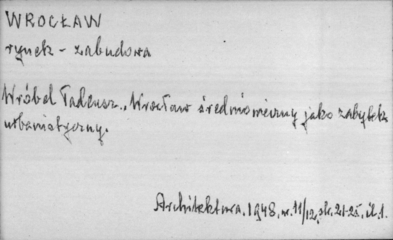 WROCŁAW
rynek - zabudowa
Wróbel Tadeusz., Wrocław średniowieczny jako zabytek
urbanistyczny.
Architektura. 1948, nr. 11/12, str. 21-25, il. 1.